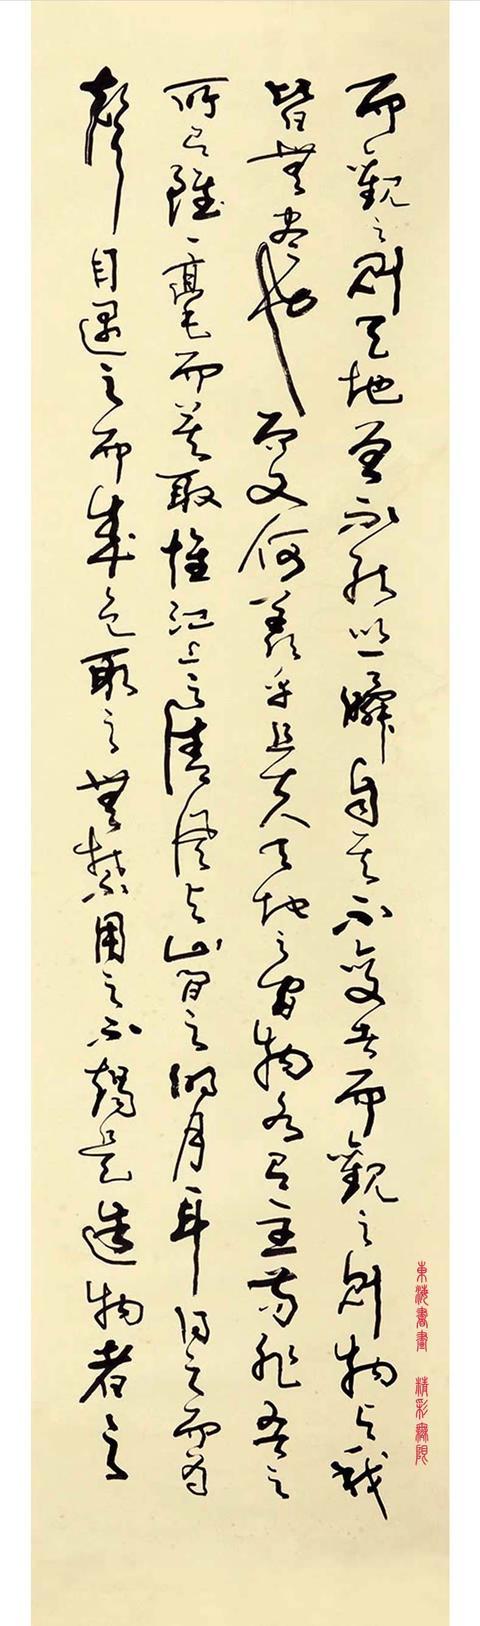 而觀之則天地曾不能以一瞬自其不變者而觀之則物與我
皆無盡也而又何羨乎且夫天地之間物各有主苟非吾之
所有雖一毫而莫取惟江上之清風與山間之明月耳得之而為
聲目遇之而成色取之無禁用之不竭是造物者之
東海書畫 精彩無限